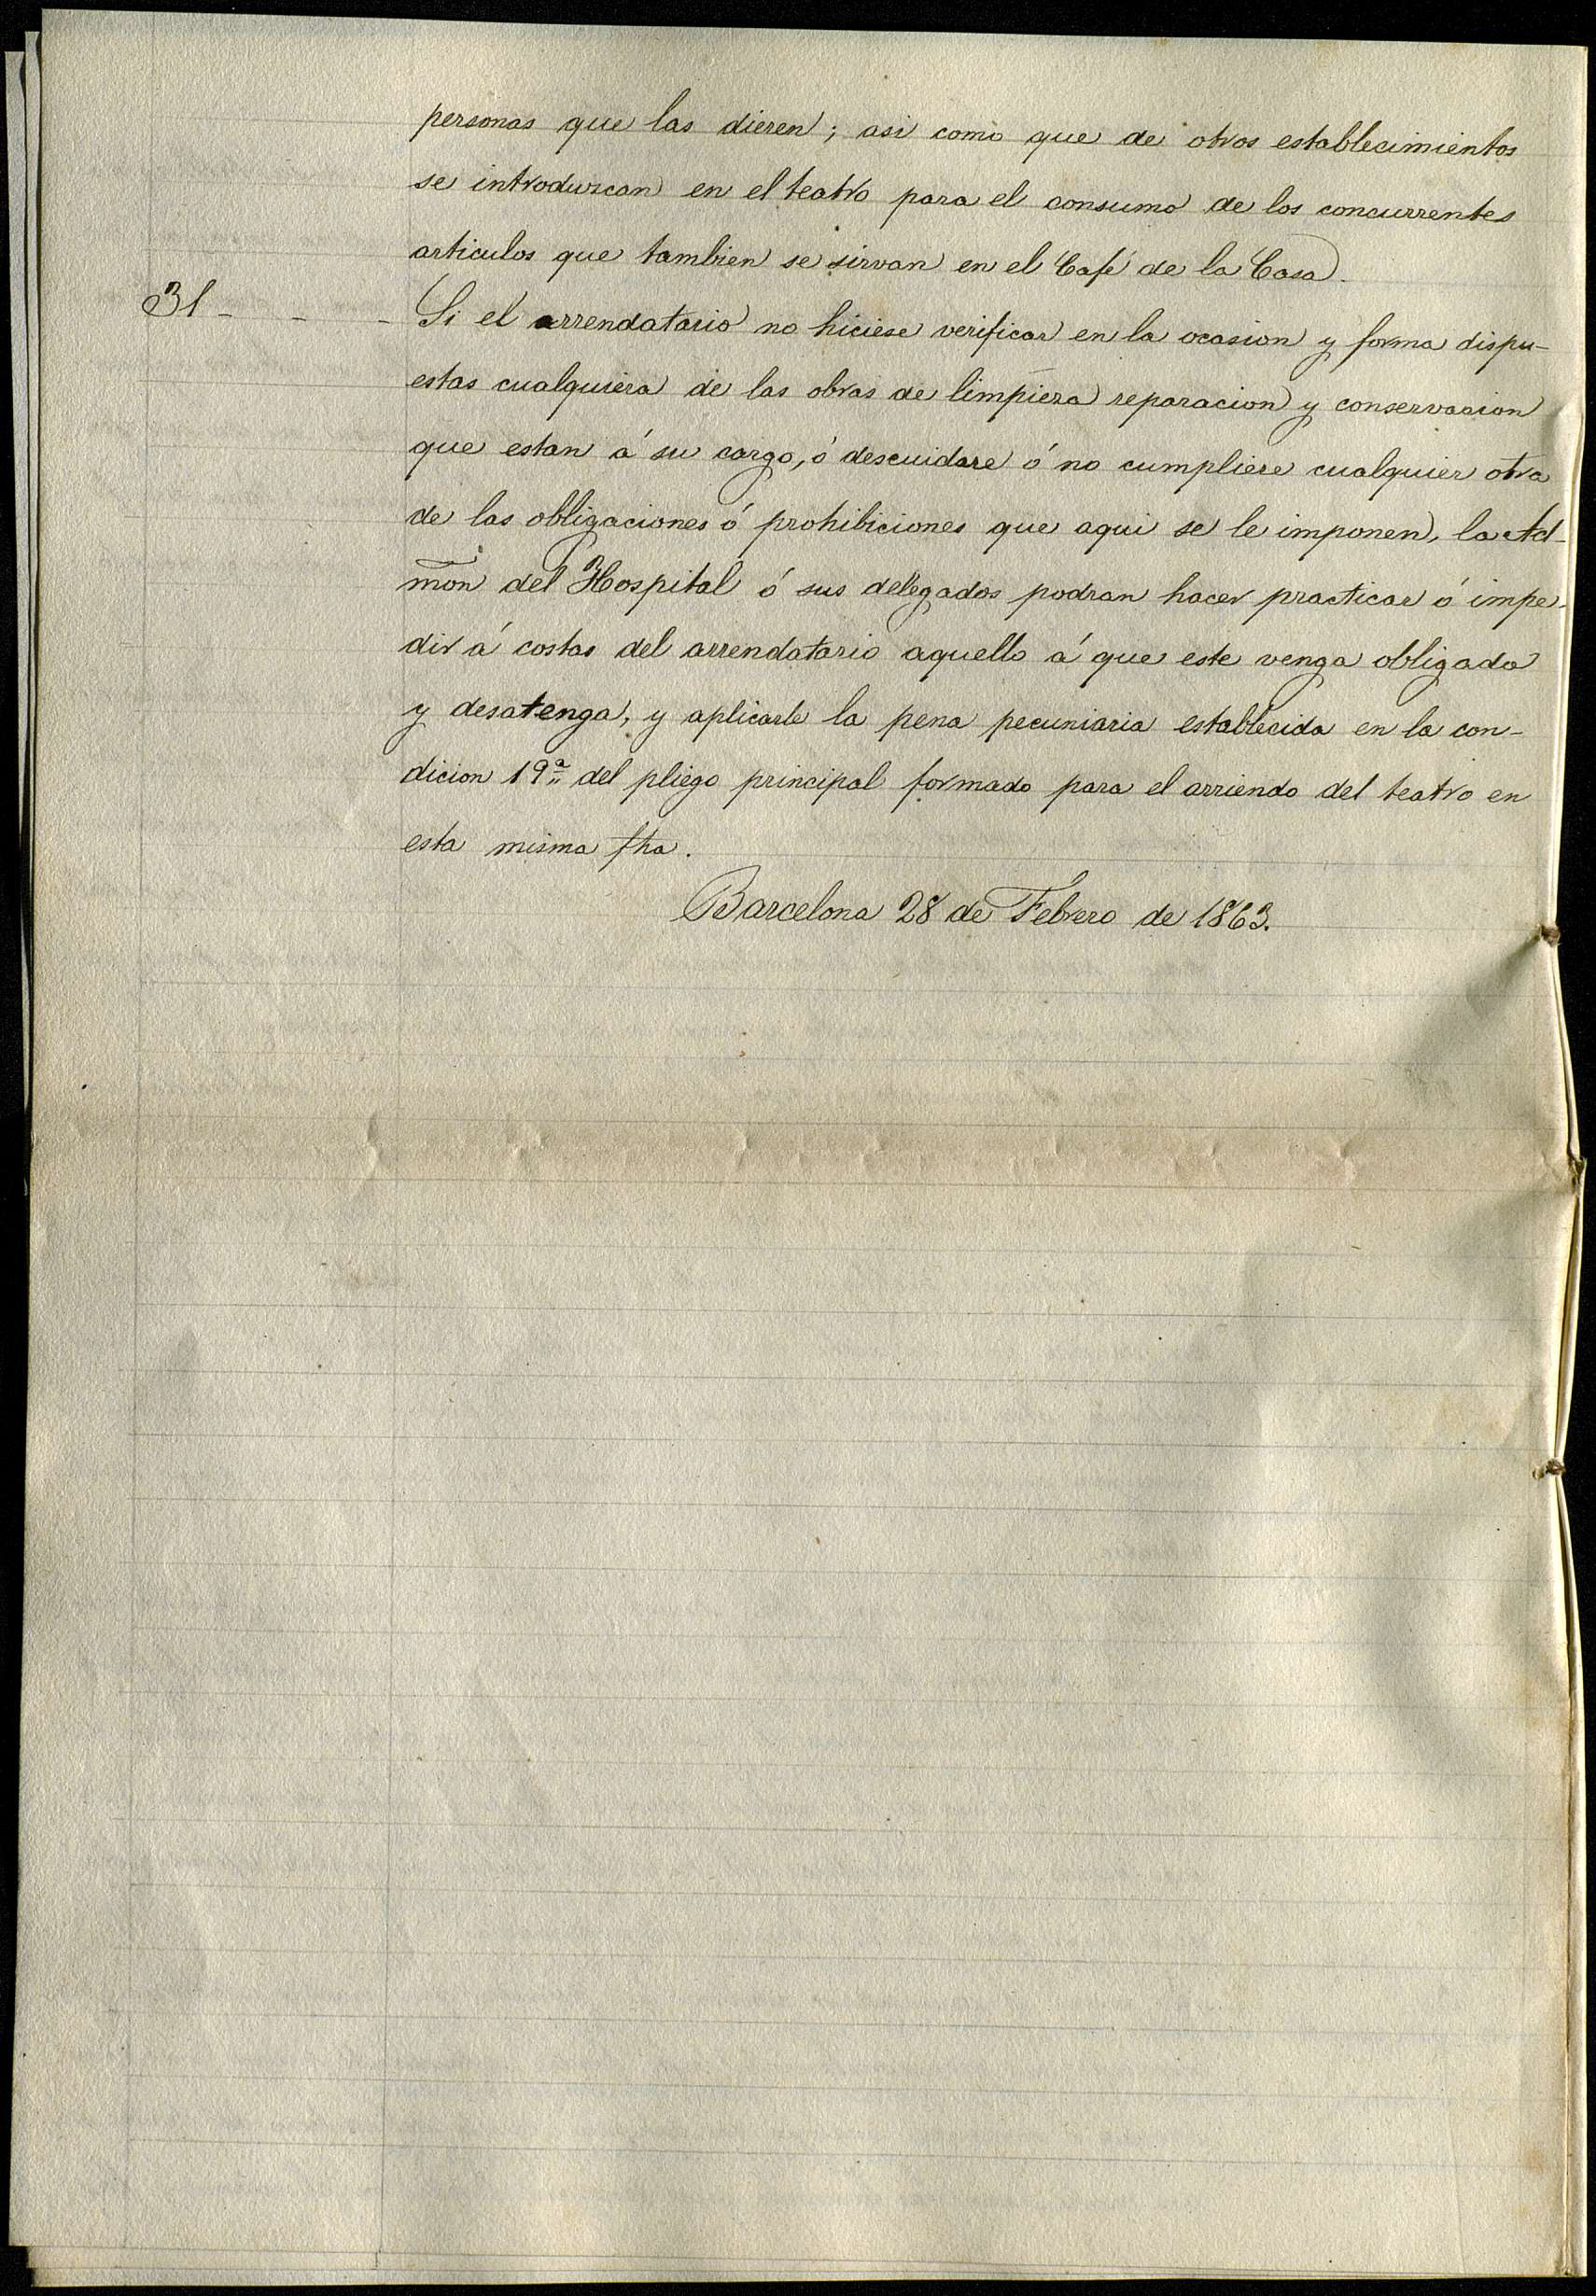 personas que las dieren; asi como que de otros establecimientos
se introduzcan en el teatro para el consumo de los concurrentes
articulos que tambien se sirvan en el Café de la Casa.
31 - - - Si el arrendatario no hiciese verificar en la ocasion y forma dispu-
estas cualquiera de las obras de limpieza reparacion y conservacion
que estan á su cargo, ó descuidare ó no cumpliere cualquier otra
de las obligaciones ó prohibiciones que aqui se le imponen, la Ad-
mon del Hospital ó sus delegados podran hacer practicar ó impe-
dir á costas del arrendatario aquello á que este venga obligado
y desatenga, y aplicarle la pena pecuniaria establecida en la con-
dicion 19ª del pliego principal formado para el arriendo del teatro en
esta misma fha.
Barcelona 28 de Febrero de 1863.